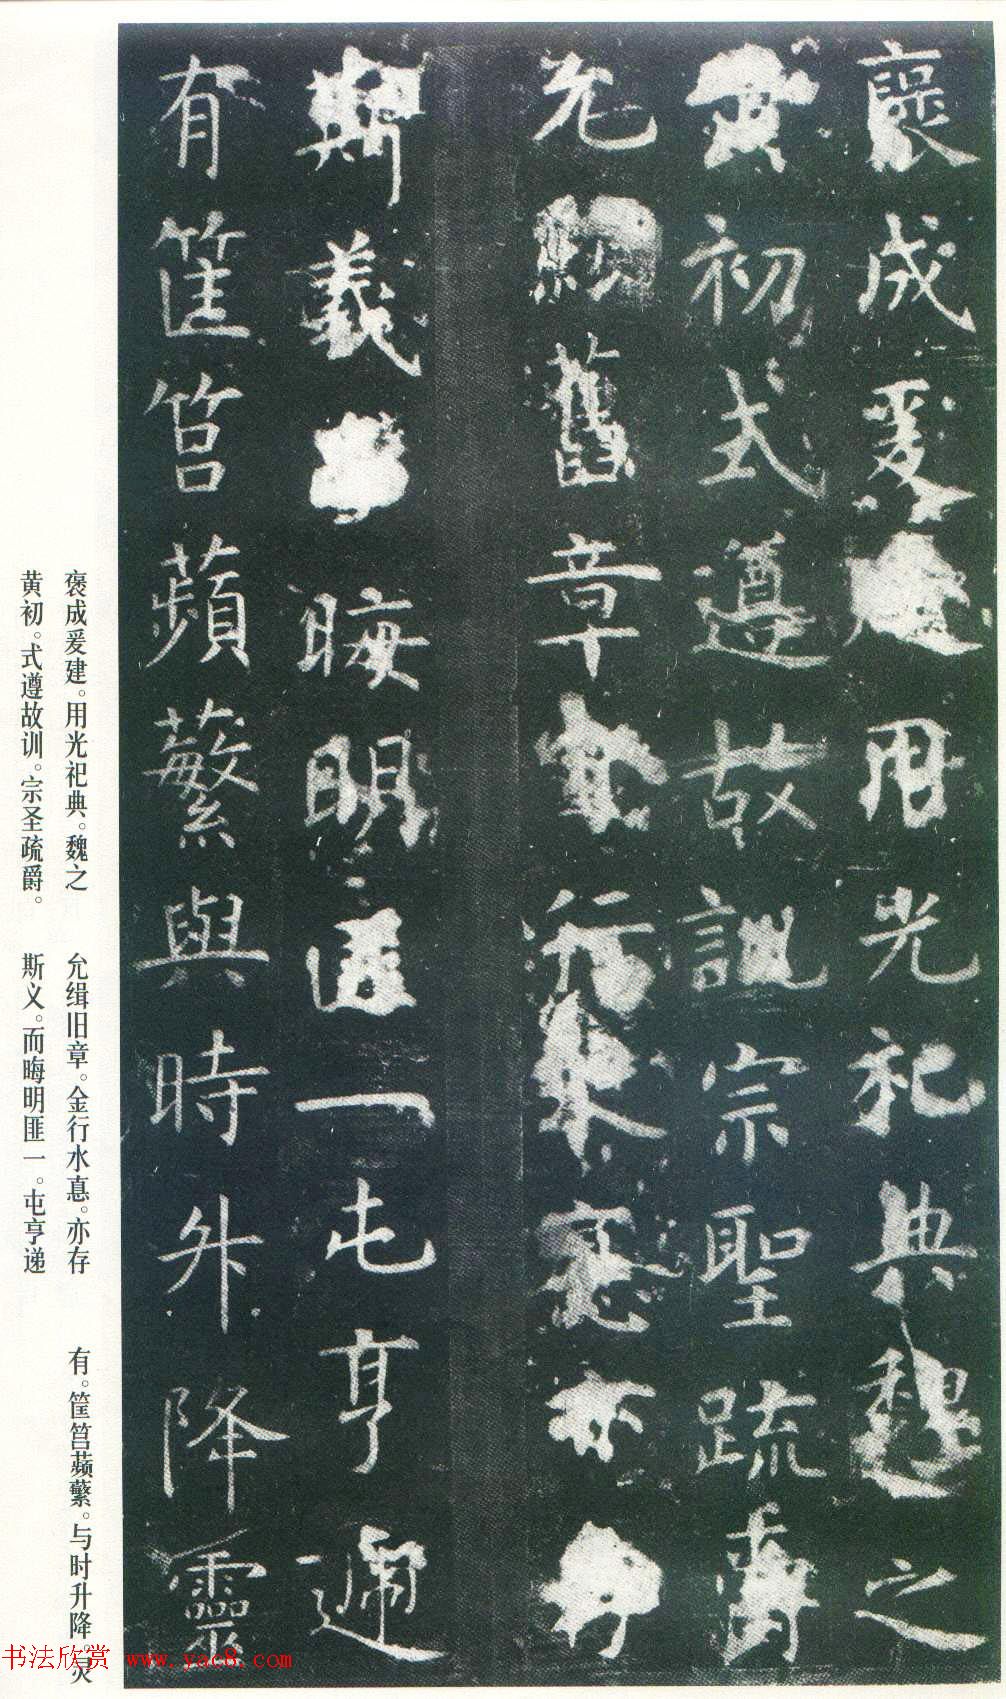 襃成爰建用光祀典魏之
黃初式遵故訓宗聖疏爵
允緝舊章金行水悳亦存
斯義晦明匪一屯亨遞
有筐筥蘋蘩與時升降靈
褒成爰建。用光祀典。魏之
黄初。式遵故训。宗圣疏爵。
允缉旧章。金行水悳。亦存
斯义。而晦明匪一。屯亨递
有。筐筥𬞟蘩。与时升降。灵
书法欣赏 www.yac8.com